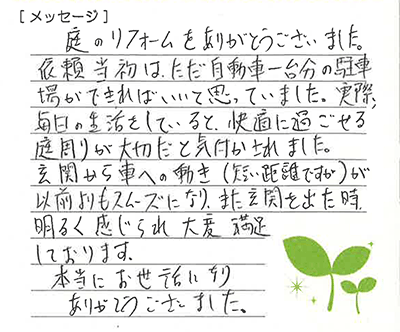 [メッセージ]
庭のリフォームをありがとうございました。
依頼当初は、ただ自動車一台分の駐車
場ができればいいと思っていました。実際、
毎日の生活をしていると、快適に過ごせる
庭周りが大切だと気付かされました。
玄関から車への動き(短い距離ですが)が
以前よりもスムーズになり、また玄関を出た時、
明るく感じられ大変満足
しております。
本当にお世話になり
ありがとうございました。